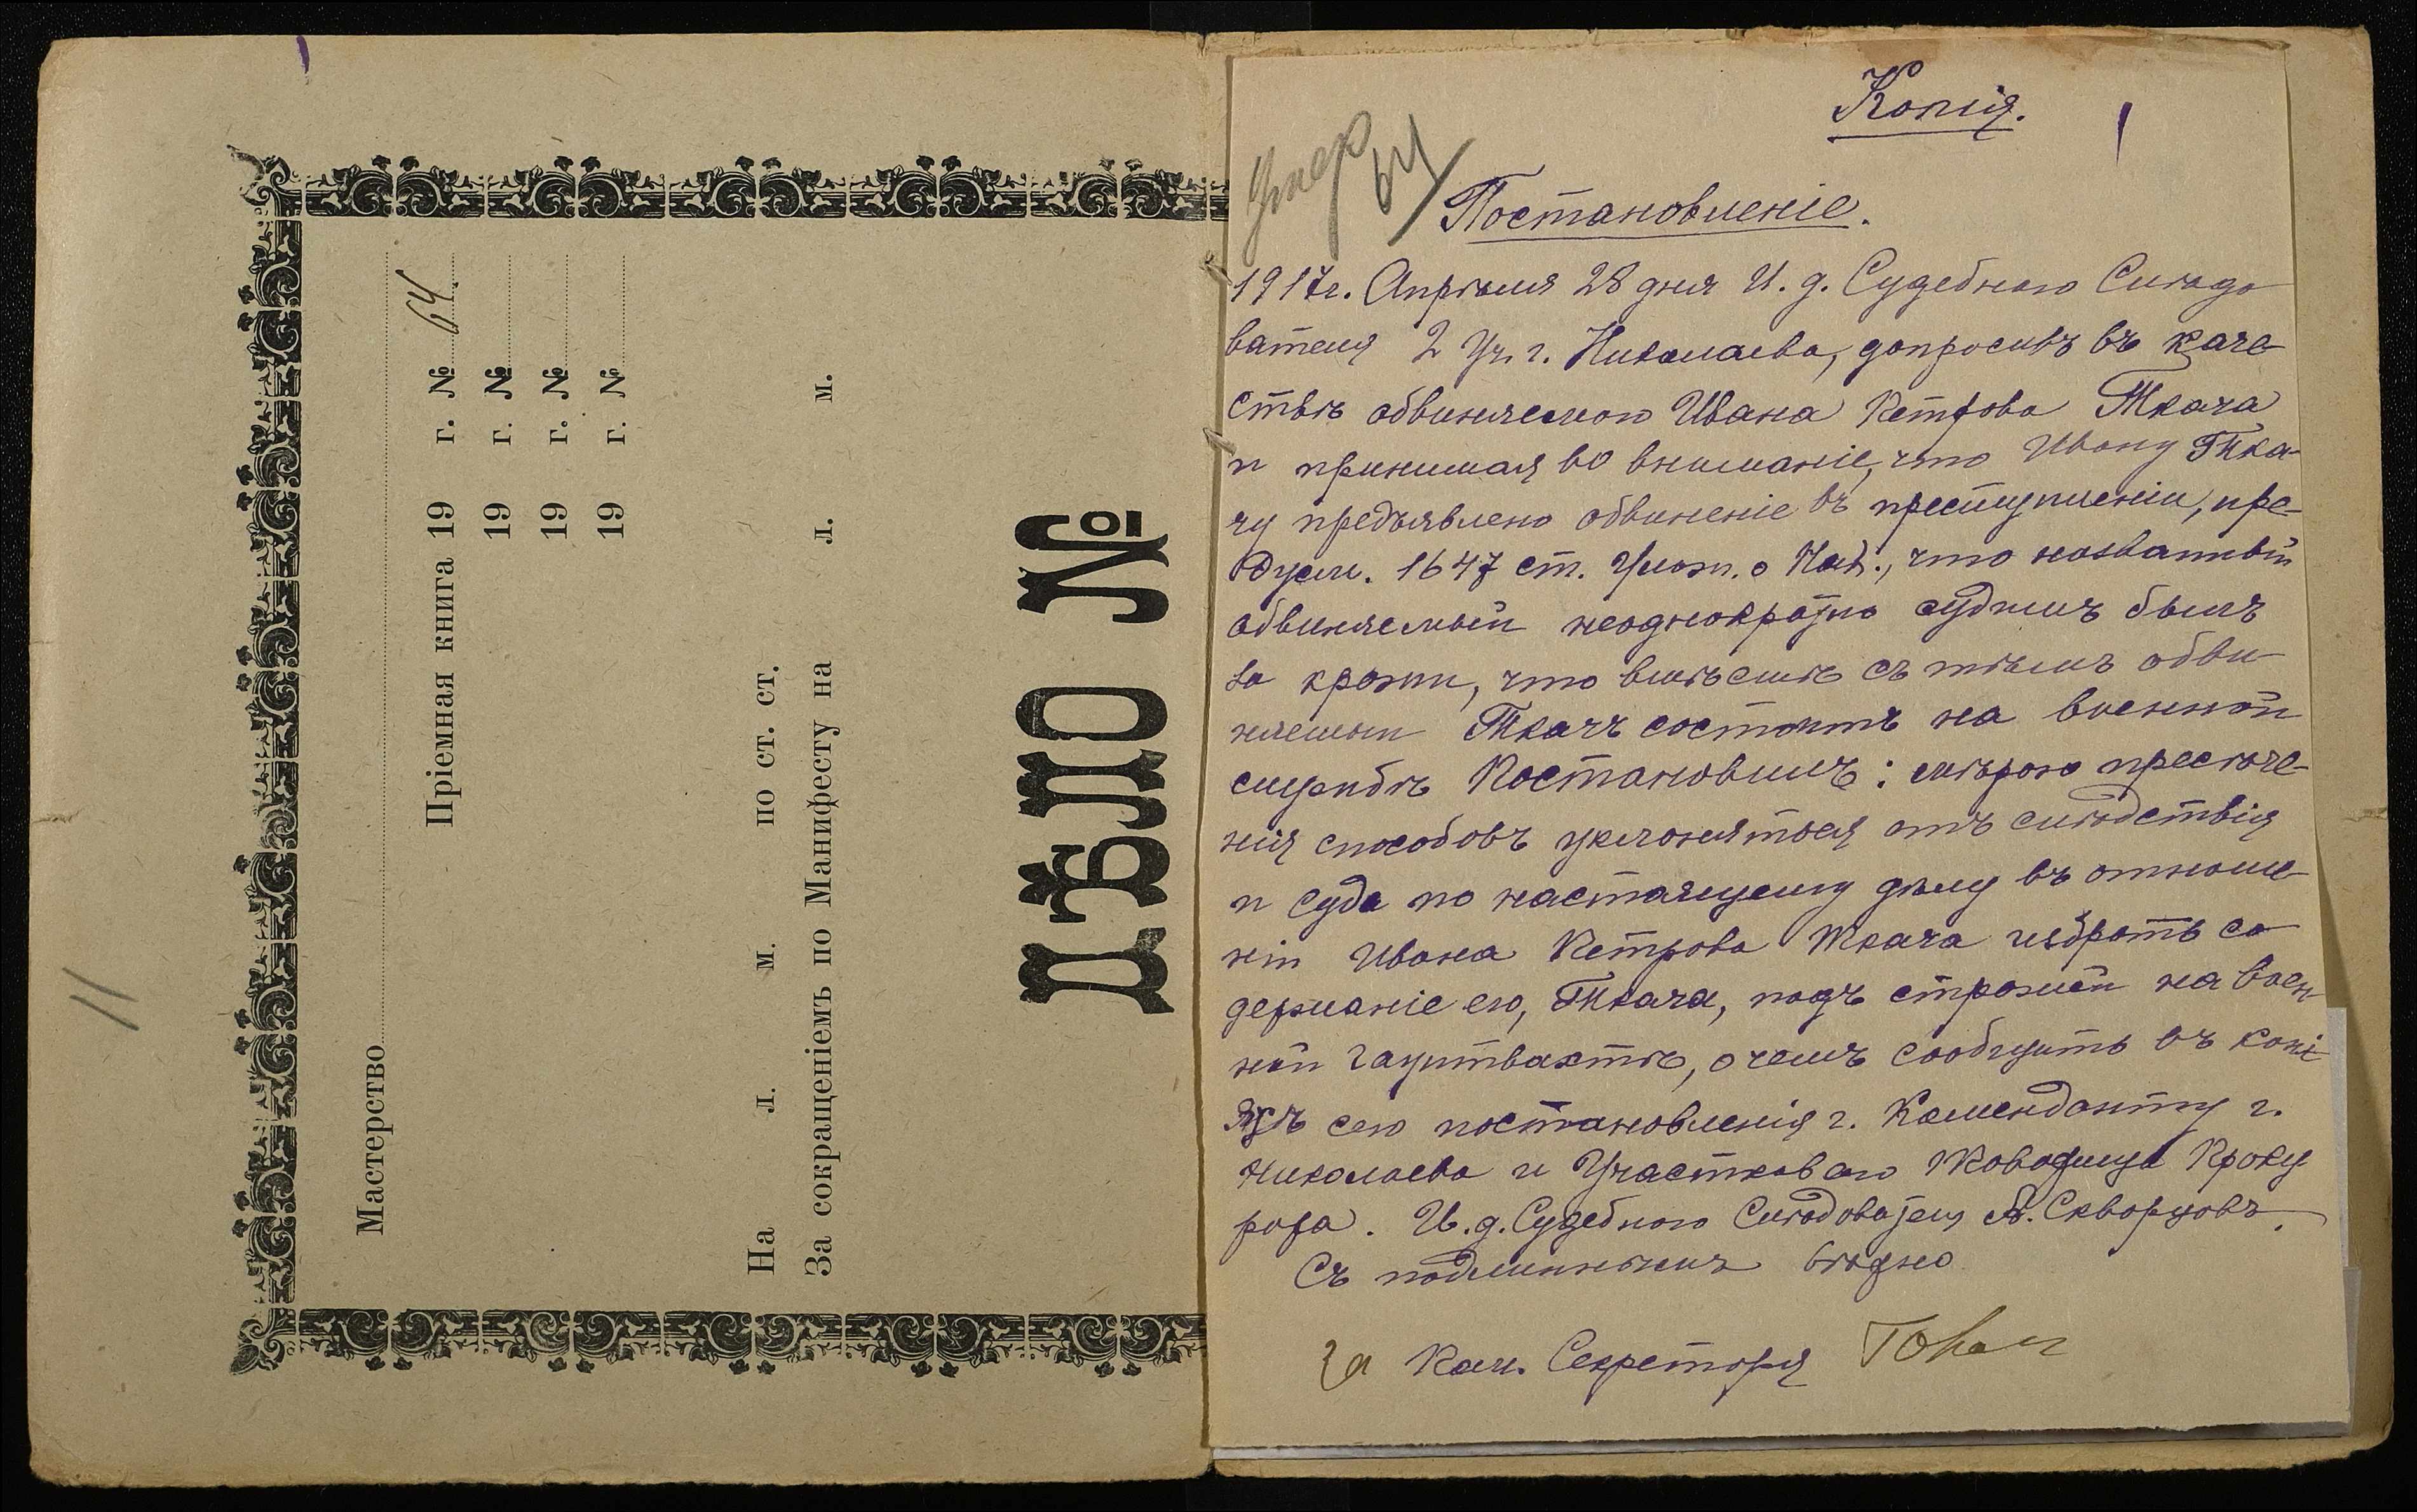 Мастерство
Пріемная книга 19 г. № 64
19 г. №
19 г. №
19 г. №
На л. м. по ст. ст.
За сокращеніемъ по Манифесту на л. м.
ДѢЛО №
11
Копія.
1
Умер
64
Постановленіе.
1917г. Апрѣля 28 дня И. д. Судебнаго Слѣдо
вателя 2 уч. г. Николаева, допросивъ въ каче
ствѣ обвиняемаго Ивана Петрова Ткача
и принимая во вниманіе, что Ивану Тка-
чу предъявлено обвиненіе въ преступленіи, пре-
дусм. 1647 ст. Улож. о Нак., что названный
обвиняемый неоднократно судимъ былъ
за кражи, что вмѣстѣ съ тѣмъ обви
няемый Ткачъ состоитъ на военной
службѣ Постановилъ: мѣрою пресѣче-
нія способовъ уклоняться отъ слѣдствія
и суда по настоящему дѣлу въ отноше
ніи Ивана Петрова Ткача избрать со
держаніе его, Ткача, подъ стражей на воен
ной гауптвахтѣ, о чемъ сообщить въ копі-
яхъ сего постановленія г. Коменданту г.
Николаева и Участковаго Товарища Проку
рора. И. д. Судебнаго Слѣдователя А. Скворцовъ.
Съ подлиннымъ вѣрно
За Кан. Секретаря